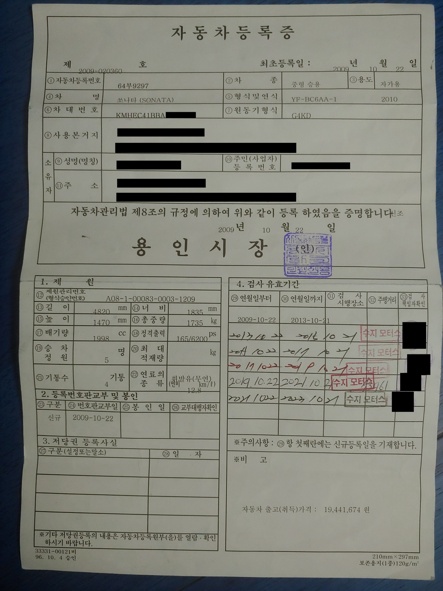 자동차등록증
제 2009-020360 호 최초등록일 : 2009년 10월 22일
①자동차등록번호 64부9297 ②차종 중형 승용 ③용도 자가용
④차명 쏘나타 (SONATA) ⑤형식및연식 YF-BC6AA-1 2010
⑥차대번호 KMHEC41BBA ⑦원동기형식 G4KD
⑧사용본거지
소유자 ⑨성명(명칭) ⑩주민(사업자)등록번호
⑪주소
자동차관리법 제8조의 규정에 의하여 위와 같이 등록 하였음을 증명합니다.
2009년 10월 22일
용인시장 (인)
1. 제원
형식승인번호 A08-1-00083-0003-1209
길이 4820 mm 너비 1835 mm
높이 1470 mm 총중량 1735 kg
배기량 1998 cc 정격출력 165/6200 ps
승차정원 5 명 최대적재량 kg
기통수 4 기통 연료의종류 휘발유(무연) 12.8 km/ℓ
2. 등록번호판교부 및 봉인
구분 번호판교부일 봉인일 교부대행자확인
신규 2009-10-22
3. 저당권 등록사실
구분(설정또는말소) 일자
※기타 저당권등록의 내용은 자동차등록원부(을)를 열람·확인하시기 바랍니다.
33331-00121비
96. 10. 4 승인
4. 검사 유효기간
연월일부터 연월일까지 검사시행장소 주행거리 검사책임자확인
2009-10-22 2013-10-21
2013 10 22 2015 10 21 수지 모터스
2015 10 22 2017 10 21 수지 모터스
2017 10 22 2019 10 21 수지 모터스
2019 10 22 2021 10 21 수지 모터스
2021 10 22 2023 10 21 수지 모터스
※주의사항 : 항 첫째란에는 신규등록일을 기재합니다.
※비고
자동차 출고(취득)가격 : 19,441,674 원
210mm×297mm
보존용지(1종)120g/㎡